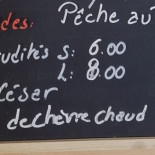 des: Pêche au
udités S: 6.00
L: 8.00
César
de chèvre chaud